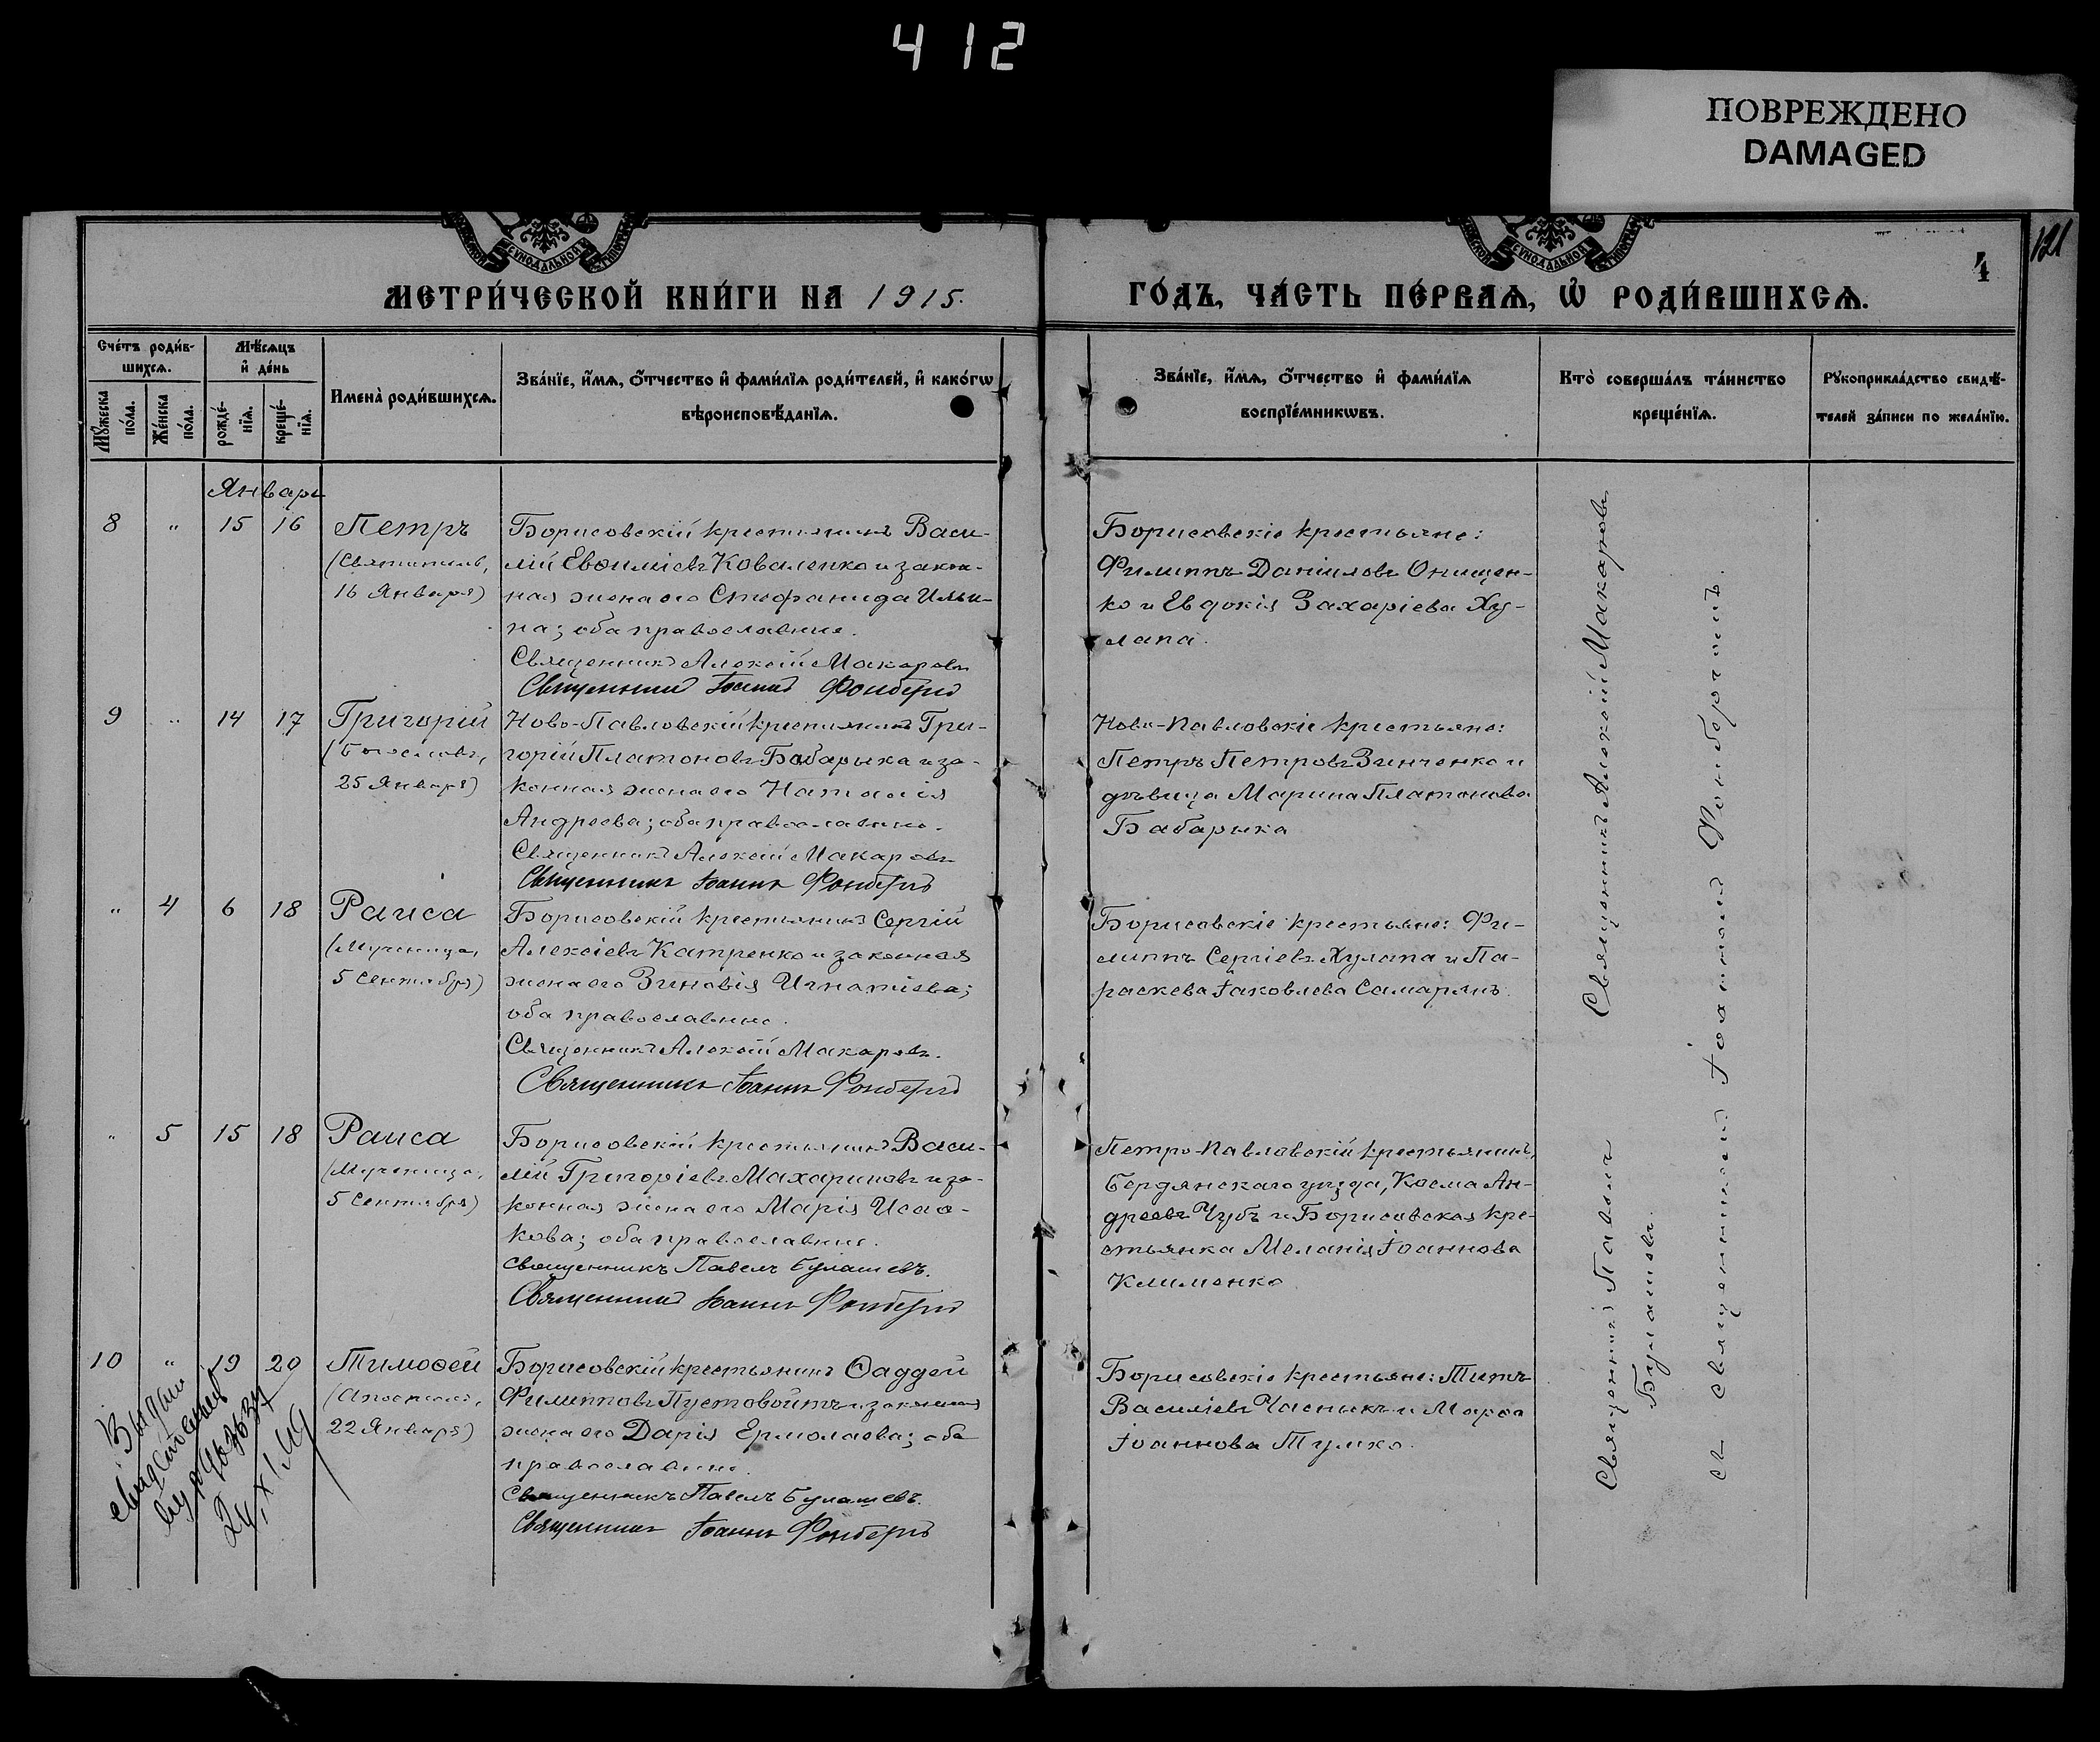 412
ПОВРЕЖДЕНО
DAMAGED
121
4
МЕТРИ́ЧЕСКОЙ КНИ́ГИ НА 1915.
ГО́ДЪ, ЧА́СТЬ ПЕ́РВАѦ, Ѡ҆ РОДИ́ВШИХСѦ.
Сче́тъ роди́в-
шихсѧ.
Мѣ́сѧцъ
и҆ де́нь
Мꙋ́жеска
по́ла.
Же́нска
по́ла.
рожде́-
нїѧ.
креще́-
нїѧ.
И҆мена̀ роди́вшихсѧ.
Зва́нїе, и҆́мѧ, ѻ҆́тчество и҆ фами́лїѧ роди́телей, и҆ како́гѡ
вѣроисповѣ́данїѧ.
Зва́нїе, и҆́мѧ, ѻ҆́тчество и҆ фами́лїѧ
воспрїе́мникѡвъ.
Кто̀ соверша́лъ та́инство
креще́нїѧ.
Рꙋкоприкла́дство свидѣ́-
телей за́писи по жела́нїю.
Январь
8 " 15 16 Петръ
(Святитель,
16 Января)
Борисовскій крестьянинъ Васи-
лій Евѳиміевъ Коваленко и закон-
ная жена его Стефанида Ильи-
на; оба православные.
Священникъ Алексій Макаровъ
Священникъ Іоаннъ Фонбергъ
Борисовскіе крестьяне:
Филиппъ Даніиловъ Онищен-
ко и Евдокія Захаріева Ху-
лапа.
9 " 14 17 Григорій
(Богословъ,
25 Января)
Ново-Павловскій крестьянинъ Гри-
горій Платоновъ Бабарыка и за-
конная жена его Наталія
Андреева; оба православные.
Священникъ Алексій Макаровъ
Священникъ Іоаннъ Фонбергъ
Ново-Павловскіе крестьяне:
Петръ Петровъ Зинченко и
дѣвица Марина Платонова
Бабарыка
" 4 6 18 Раиса
(Мученица,
5 Сентября)
Борисовскій крестьянинъ Сергій
Алексіевъ Катренко и законная
жена его Зиновія Игнатіева;
оба православные.
Священникъ Алексій Макаровъ.
Священникъ Іоаннъ Фонбергъ
Борисовскіе крестьяне: Фи-
липпъ Сергіевъ Хулапа и Па-
раскева Іаковлева Самарянъ.
" 5 15 18 Раиса
(Мученица,
5 Сентября)
Борисовскій крестьянинъ Васи-
лій Григоріевъ Махариновъ и за-
конная жена его Марія Исаа-
кова; оба православные.
Священникъ Павелъ Булашевъ.
Священникъ Іоаннъ Фонбергъ
Петро-Павловскій крестьянинъ,
Бердянскаго уѣзда, Косма Ан-
дреевъ Чубъ и Борисовская кре-
стьянка Меланія Іоаннова
Клименко
10 " 19 20 Тимоѳей
(Апостолъ,
22 Января)
Борисовскій крестьянинъ Ѳаддей
Филипповъ Пустовойтъ и законная
жена его Дарія Ермолаева; оба
православные.
Священникъ Павелъ Булашевъ.
Священникъ Іоаннъ Фонбергъ
Борисовскіе крестьяне: Титъ
Василіевъ Часныкъ и Марѳа
Іоаннова Тулико.
Священникъ Алексій Макаровъ
Священникъ Павелъ
Булашевъ.
съ священникомъ Іоанномъ Фонбергомъ.